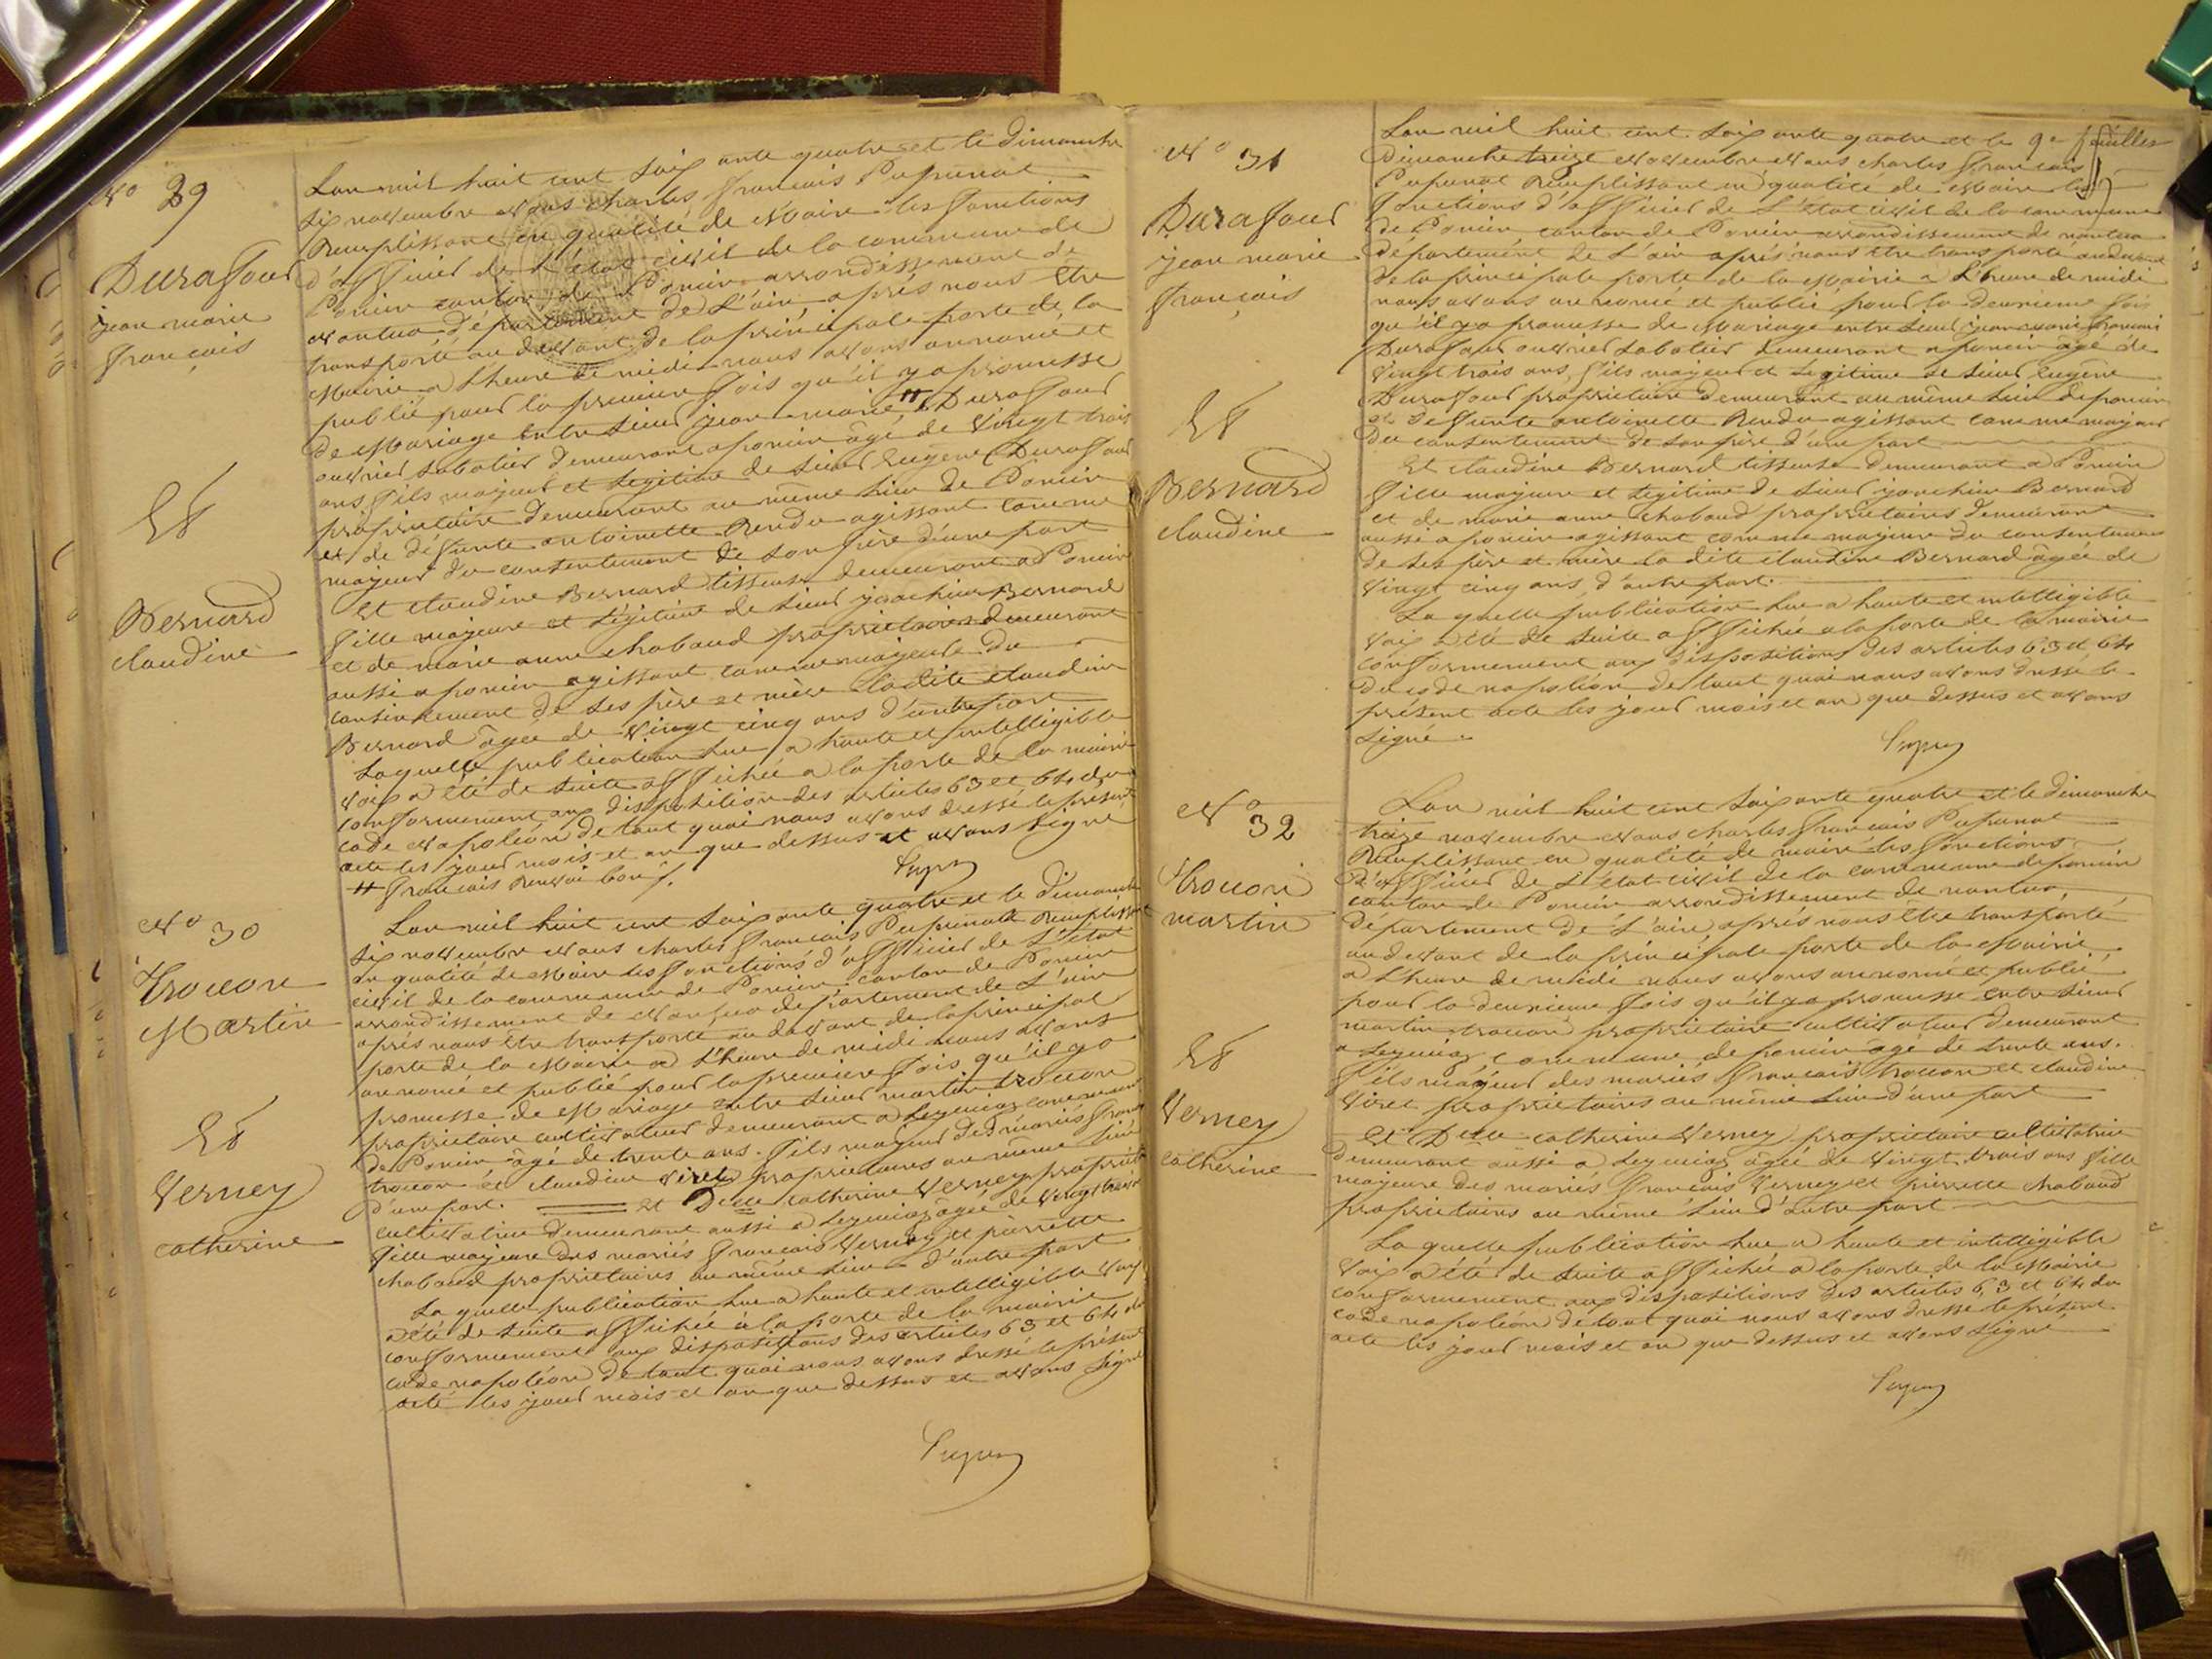 No 29
Durafour
jean marie
français
Et
Bernard
claudine
L'an mil huit cent soixante quatre et le dimanche
six novembre Nous charles françois Pupunat
Remplissant en qualité de Maire les fonctions
d'officier de L'état civil de la commune de
Poncin canton de Poncin arrondissement de
Nantua département de L'ain après nous être
transporté au devant de la principale porte de la
Mairie a l'heure de midi nous avons annoncé et
publié pour la première fois qu'il y a promesse
de Mariage entre sieur jean-marie " Durafour
ouvrier sabotier demeurant a poncin âgé de Vingt trois
ans, fils majeur et legitime de sieur Eugène Durafour
propriétaire demeurant au même lieu de Poncin
et de défunte antoinette Rendu agissant comme
majeur du consentement de son père d'une part
Et claudine Bernard tisseuse demeurant a Poncin
fille majeure et légitime de sieur joachim Bernard
et de marie anne chabaud propriétaires demeurant
aussi a poncin agissant comme majeure du
consentement de ses père et mère ladite claudine
Bernard âgée de Vingt cinq ans d'autre part
Laquelle publication lue a haute et intelligible
voix a été de suite affichée a la porte de la mairie
conformement aux disposition des articles 63 et 64 du
code Napoléon de tout quoi nous avons dressé le présent
acte les jour mois et an que dessus et avons signé
" français renvoi bon
No 30
trocon
Martin
Et
Verney
catherine
L'an mil huit cent soixante quatre et le dimanche
six novembre Nous charles françois Pupunat Remplissant
en qualité de Maire les fonctions d'officier de L'état
civil de la commune de Poncin canton de Poncin
arrondissement de Nantua département de L'ain
après nous être transporté au devant de la principal
porte de la Mairie a l'heure de midi nous avons
annoncé et publié pour la premiere fois qu'il y a
promesse de Mariage entre sieur martin trocon
propriétaire cultivateur demeurant a Leymiaz commune
de Poncin âgé de trente ans. fils majeur des mariés françois
trocon et claudine Viret propriétaires au même lieu
d'une part. Et Delle catherine Verney propriétaire
cultivatrice demeurant aussi a Leymiaz âgée de vingt trois
fille majeure des mariés françois Verney et pierrette
chabaud propriétaires au même lieu d'autre part
La quelle publication lue a haute et intelligible voix
a été de suite affichée a la porte de la mairie
conformement aux dispositions des articles 63 et 64 du
code napoléon De tout quoi nous avons dressé le présent
acte les jour mois et an que dessus et avons signé
No 31
Durafour
jean marie
français
Et
Bernard
claudine
9e feuillet
L'an mil huit cent soixante quatre et le
Dimanche treize Novembre Nous charles françois
Pupunat Remplissant en qualité de Maire les
fonctions d'officier de L'état civil de la commune
de Poncin canton de Poncin arrondissement de nantua
département de L'ain après nous être transporté au devant
de la principale porte de la Mairie a L'heure de midi
nous avons annoncé et publié pour la deuxieme fois
qu'il y a promesse de Mariage entre sieur jean marie francois
Durafour ouvrier sabotier demeurant a poncin âgé de
Vingt trois ans, fils majeur et legitime de sieur Eugène
Durafour propriétaire demeurant au même lieu de poncin
et défunte antoinette Rendu agissant comme majeur
du consentement de son père d'une part
Et claudine Bernard tisseuse demeurant a Poncin
fille majeure et legitime de sieur joachim Bernard
et de marie anne chabaud propriétaires demeurant
aussi a poncin agissant comme majeure du consentement
de ses père et mère la dite claudine Bernard âgée de
Vingt cinq ans d'autre part.
La quelle publication lue a haute et intelligible
voix a été de suite affichée a la porte de la mairie
conformement aux dispositions des articles 63 et 64
du code napoléon de tout quoi nous avons dressé le
présent acte les jour mois et an que dessus et avons
signé.
No 32
trocon
martin
Et
Verney
catherine
L'an mil huit cent soixante quatre et le dimanche
treize novembre Nous charles françois Pupunat
Remplissant en qualité de maire les fonctions
d'officier de L'état civil de la commune de poncin
canton de Poncin arrondissement de nantua,
département de L'ain après nous être transporté
au devant de la principale porte de la Mairie
a l'heure de midi nous avons annoncé et publié
pour la deuxieme fois qu'il y a promesse entre sieur
martin trocon propriétaire cultivateur demeurant
a Leymiaz commune de poncin âgé de trente ans.
fils majeur des mariés francois trocon et claudine
Viret propriétaires au même lieu d'une part
Et Delle catherine Verney propriétaire cultivatrice
demeurant aussi a Leymiaz âgée de vingt trois ans fille
majeure des mariés françois Verney et pierrette chabaud
propriétaires au même lieu d'autre part
La quelle publication lue a haute et intelligible
voix a été de suite affichée a la porte de la Mairie
conformement aux dispositions des articles 63 et 64 du
code napoléon de tout quoi nous avons dressé le présent
acte les jour mois et an que dessus et avons signé